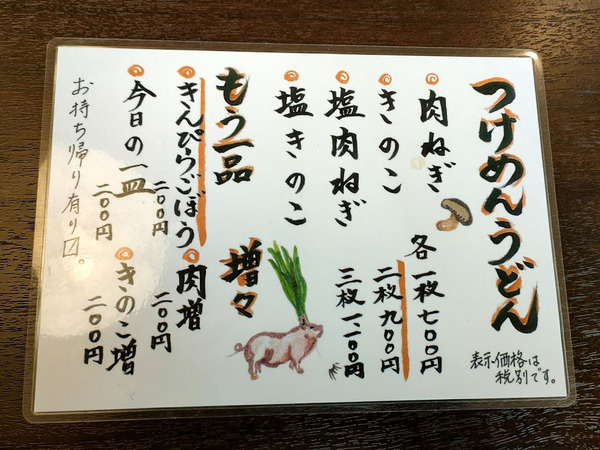 つけめんうどん
肉ねぎ
きのこ
塩肉ねぎ
塩きのこ
各一枚七〇〇円
二枚九〇〇円
三枚一、一〇〇円
表示価格は
税別です。
もう一品
きんぴらごぼう
二〇〇円
今日の一皿
二〇〇円
増々
肉増
二〇〇円
きのこ増
二〇〇円
お持ち帰り有り〼。